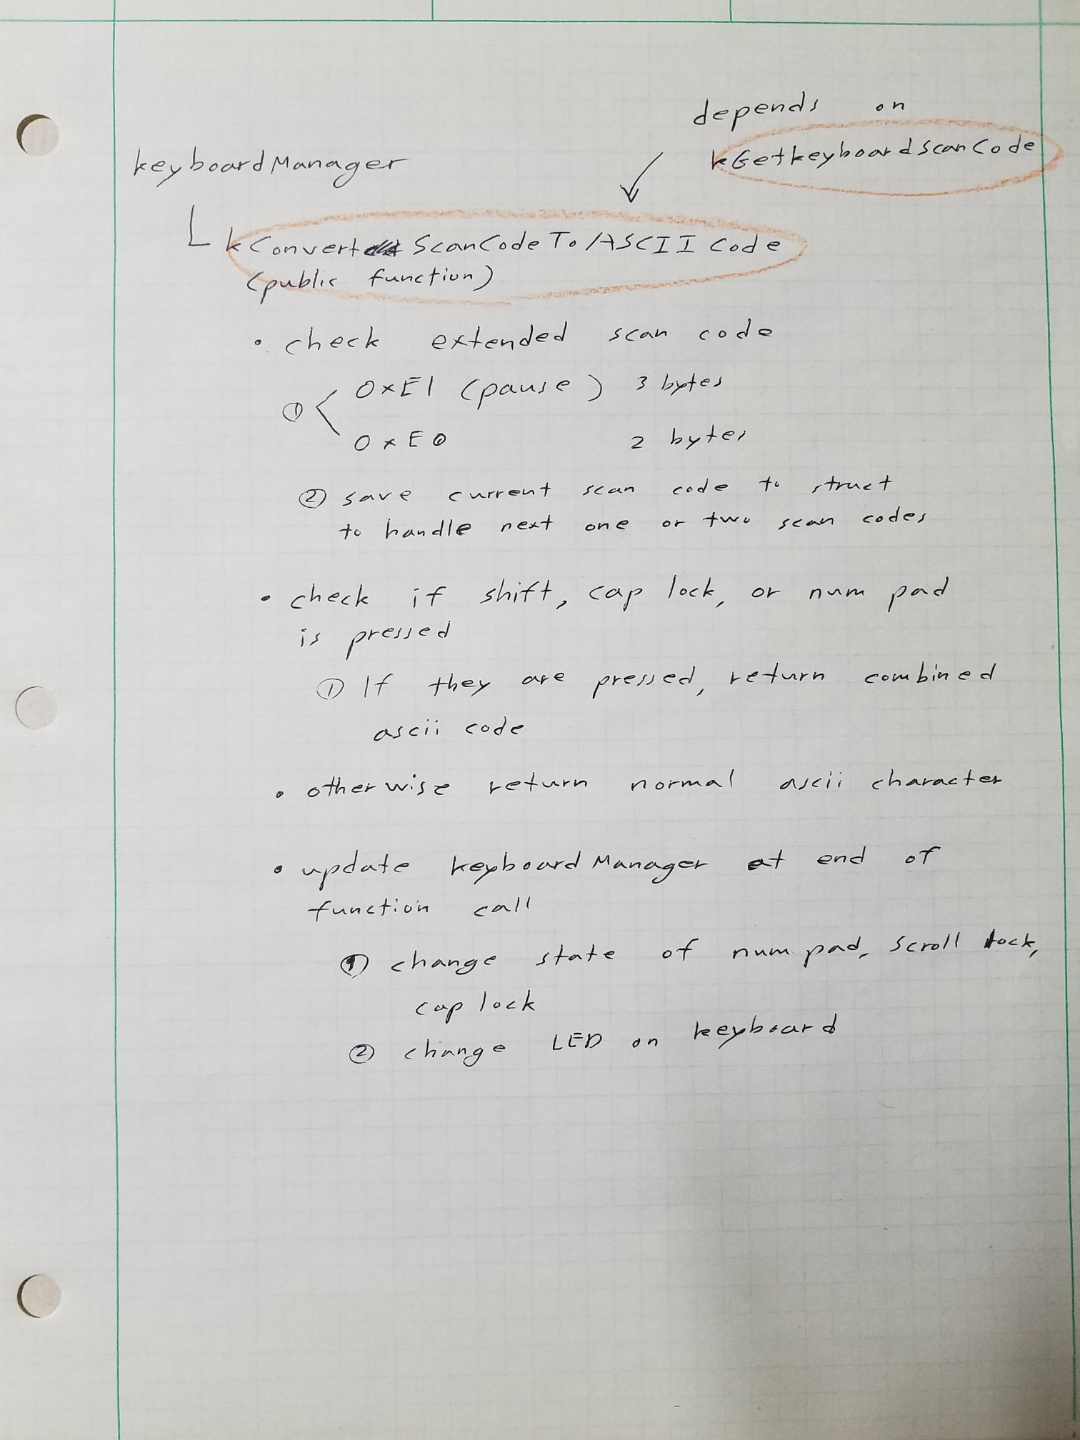 depends on
kGetkeyboardScanCode
keyboardManager
kConvert ScanCodeToASCIICode
(public function)
• check extended scan code
① 0xE1 (pause) 3 bytes
0xE0 2 bytes
② save current scan code to struct
to handle next one or two scan codes
• check if shift, cap lock, or num pad
is pressed
① If they are pressed, return combined
ascii code
• otherwise return normal ascii character
• update keyboardManager at end of
function call
① change state of num pad, scroll lock,
cap lock
② change LED on keyboard